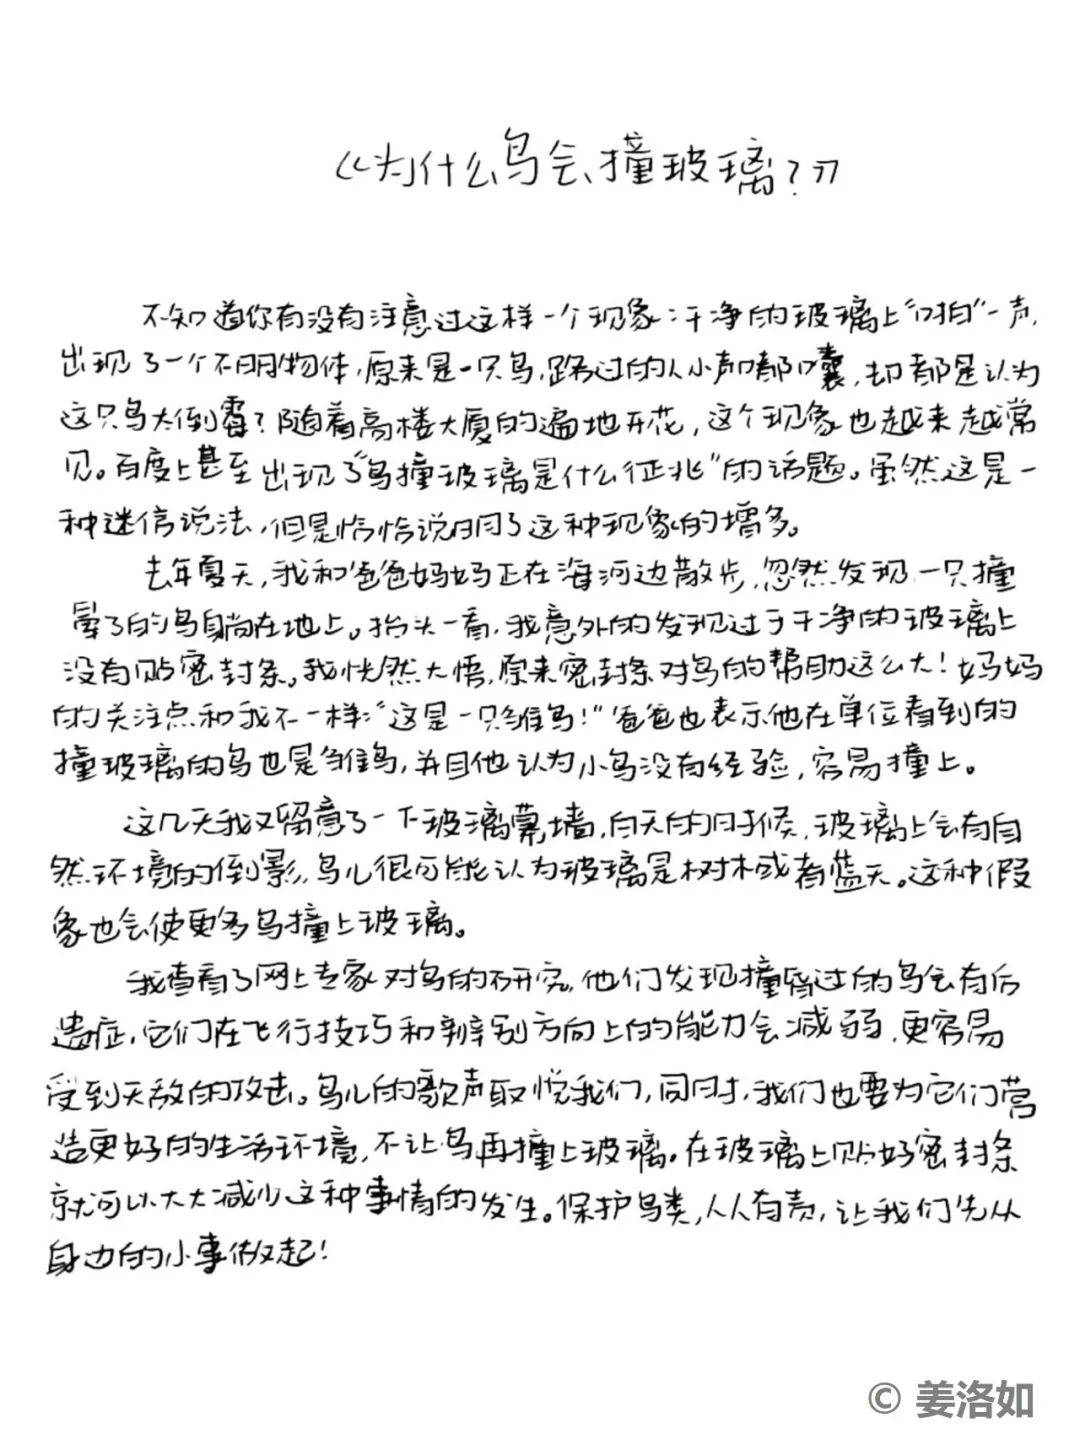 《为什么鸟会撞玻璃?》
不知道你有没有注意过这样一个现象:干净的玻璃上“啪”一声,
出现了一个不明物体,原来是一只鸟,路过的人小声嘟囔,却都是认为
这只鸟太倒霉?随着高楼大厦的遍地开花,这个现象也越来越常
见。百度上甚至出现了“鸟撞玻璃是什么征兆”的话题。虽然这是一
种迷信说法,但是恰恰说明了这种现象的增多。
去年夏天,我和爸爸妈妈正在海河边散步,忽然发现一只撞
晕了的鸟躺在地上。抬头一看,我意外的发现过于干净的玻璃上
没有贴密封条。我恍然大悟,原来密封条对鸟的帮助这么大!妈妈
的关注点和我不一样:“这是一只雏鸟!”爸爸也表示他在单位看到的
撞玻璃的鸟也是雏鸟,并且他认为小鸟没有经验,容易撞上。
这几天我又留意了一下玻璃幕墙,白天的时候,玻璃上会有自
然环境的倒影,鸟儿很可能认为玻璃是树木或者蓝天。这种假
象也会使更多鸟撞上玻璃。
我查看了网上专家对鸟的研究,他们发现撞昏过的鸟会有后
遗症,它们在飞行技巧和辨别方向上的能力会减弱,更容易
受到天敌的攻击。鸟儿的歌声取悦我们,同时,我们也要为它们营
造更好的生活环境,不让鸟再撞上玻璃。在玻璃上贴好密封条
就可以大大减少这种事情的发生。保护鸟类,人人有责,让我们先从
身边的小事做起!
© 姜洛如